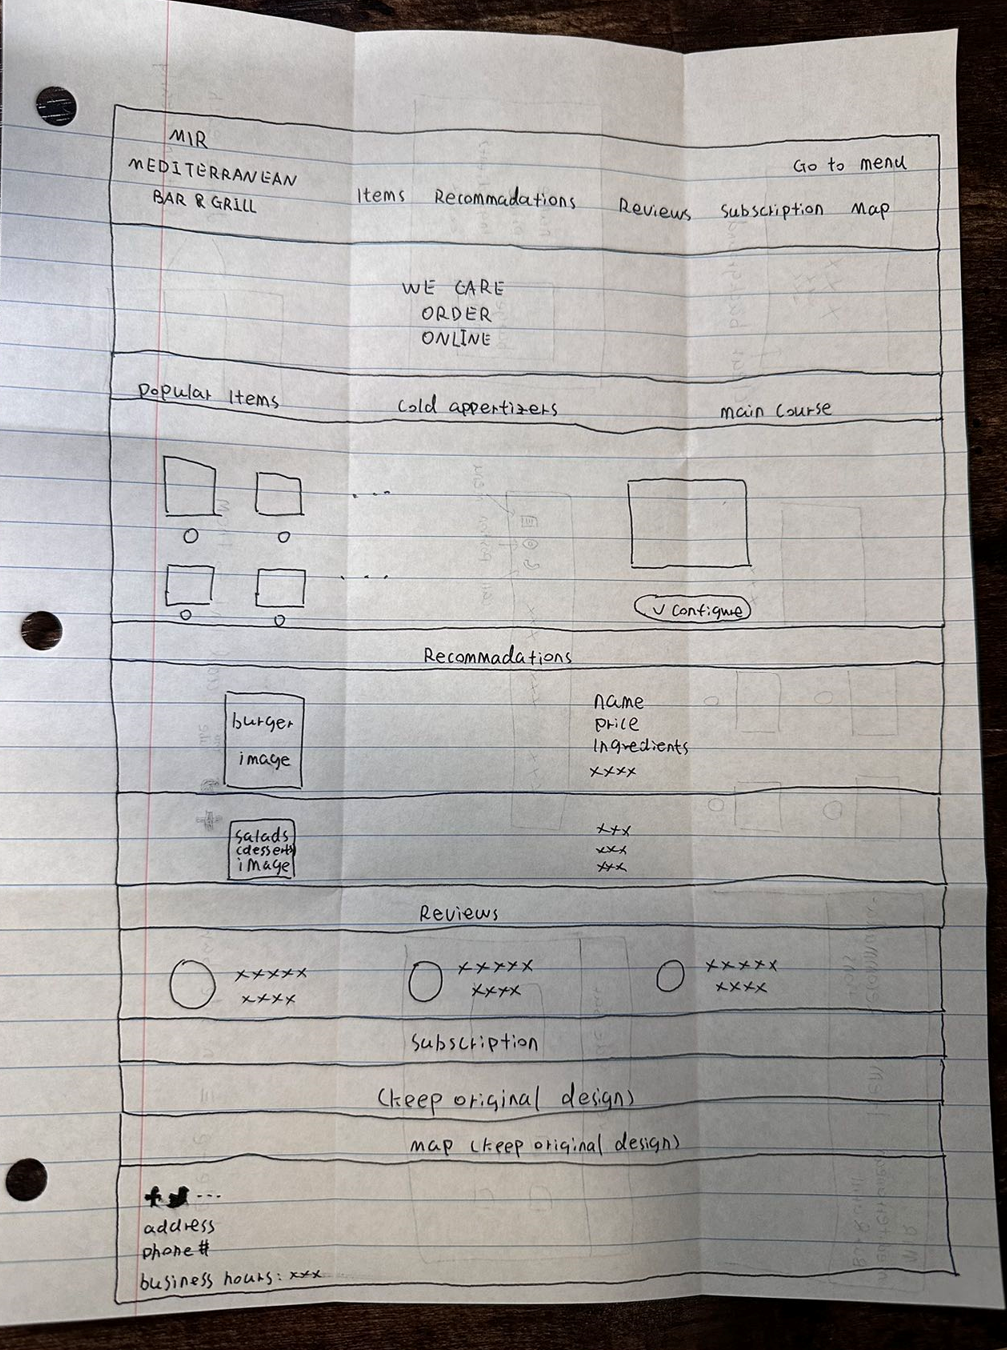 MIR
MEDITERRANEAN
BAR & GRILL
Go to menu
Items Recommadations Reviews Subscription Map
WE CARE
ORDER
ONLINE
Popular Items cold appertizers main course
v configure
Recommadations
burger
image
name
price
Ingredients
xxxx
salads
(desserts)
image
xxx
xxx
xxx
Reviews
xxxxx xxxxx xxxxx
xxxx xxxx xxxx
Subscription
(keep original design)
map (keep original design)
address
phone #
business hours: xxx